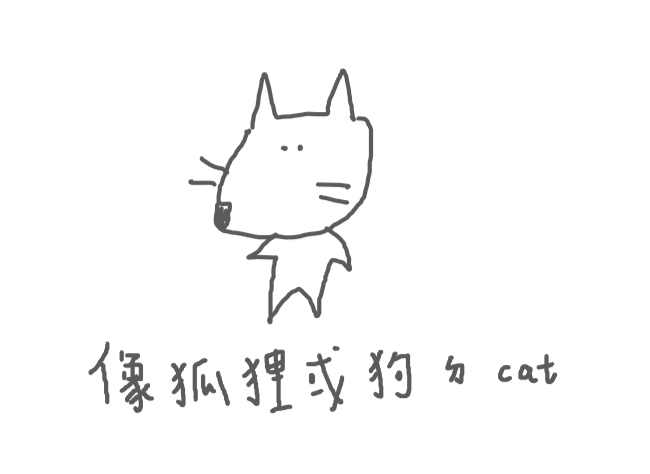 像狐狸或狗ㄉcat